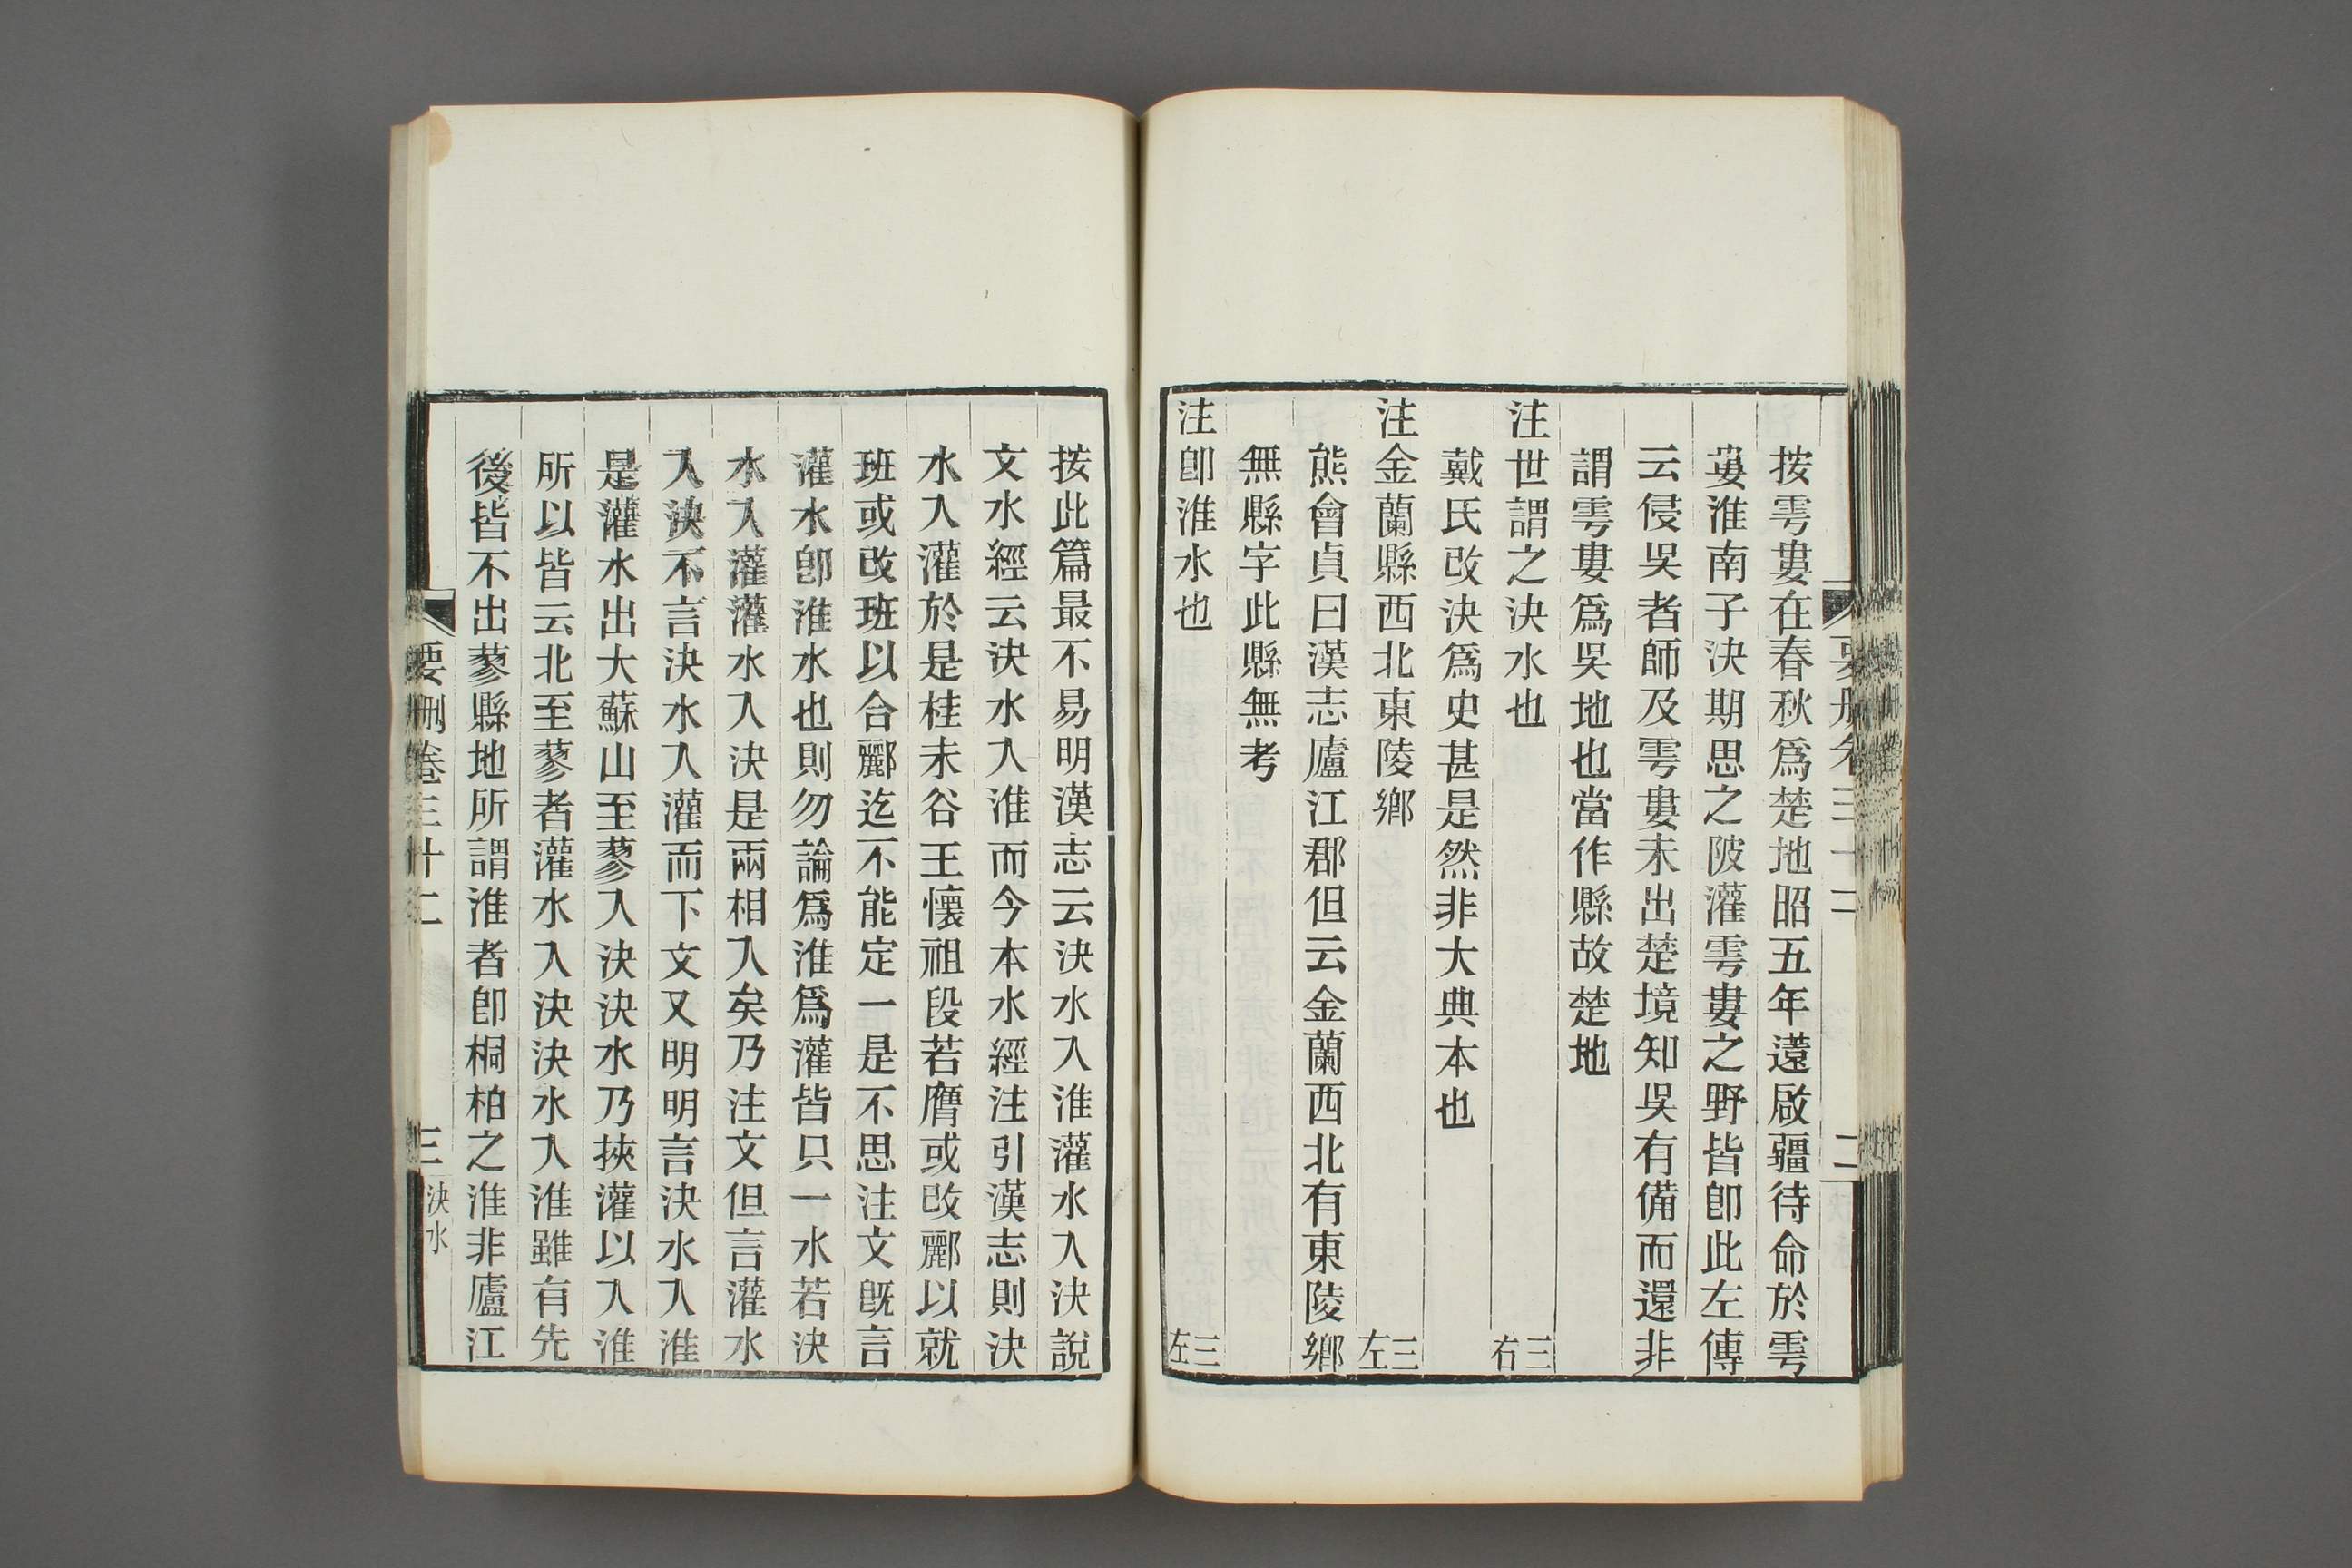 按雩婁在春秋爲楚地昭五年薳啟疆待命於雩
婁淮南子決期思之陂灌雩婁之野皆卽此左傳
云侵吳者師及雩婁未出楚境知吳有備而還非
謂雩婁爲吳地也當作縣故楚地
注世謂之決水也 三右
戴氏改決爲史甚是然非大典本也
注金蘭縣西北東陵鄉 三左
熊會貞曰漢志廬江郡但云金蘭西北有東陵鄉
無縣字此縣無考
注卽淮水也 三左
按此篇最不易明漢志云決水入淮灌水入決說
文水經云決水入淮而今本水經注引漢志則決
水入灌於是桂未谷王懷祖段若膺或改酈以就
班或改班以合酈迄不能定一是不思注文旣言
灌水卽淮水也則勿論爲淮爲灌皆只一水若決
水入灌灌水入決是兩相入矣乃注文但言灌水
入決不言決水入灌而下文又明明言決水入淮
是灌水出大蘇山至蓼入決決水乃挾灌以入淮
所以皆云北至蓼者灌水入決決水入淮雖有先
後皆不出蓼縣地所謂淮者卽桐柏之淮非廬江
要刪卷三十二 三 決水